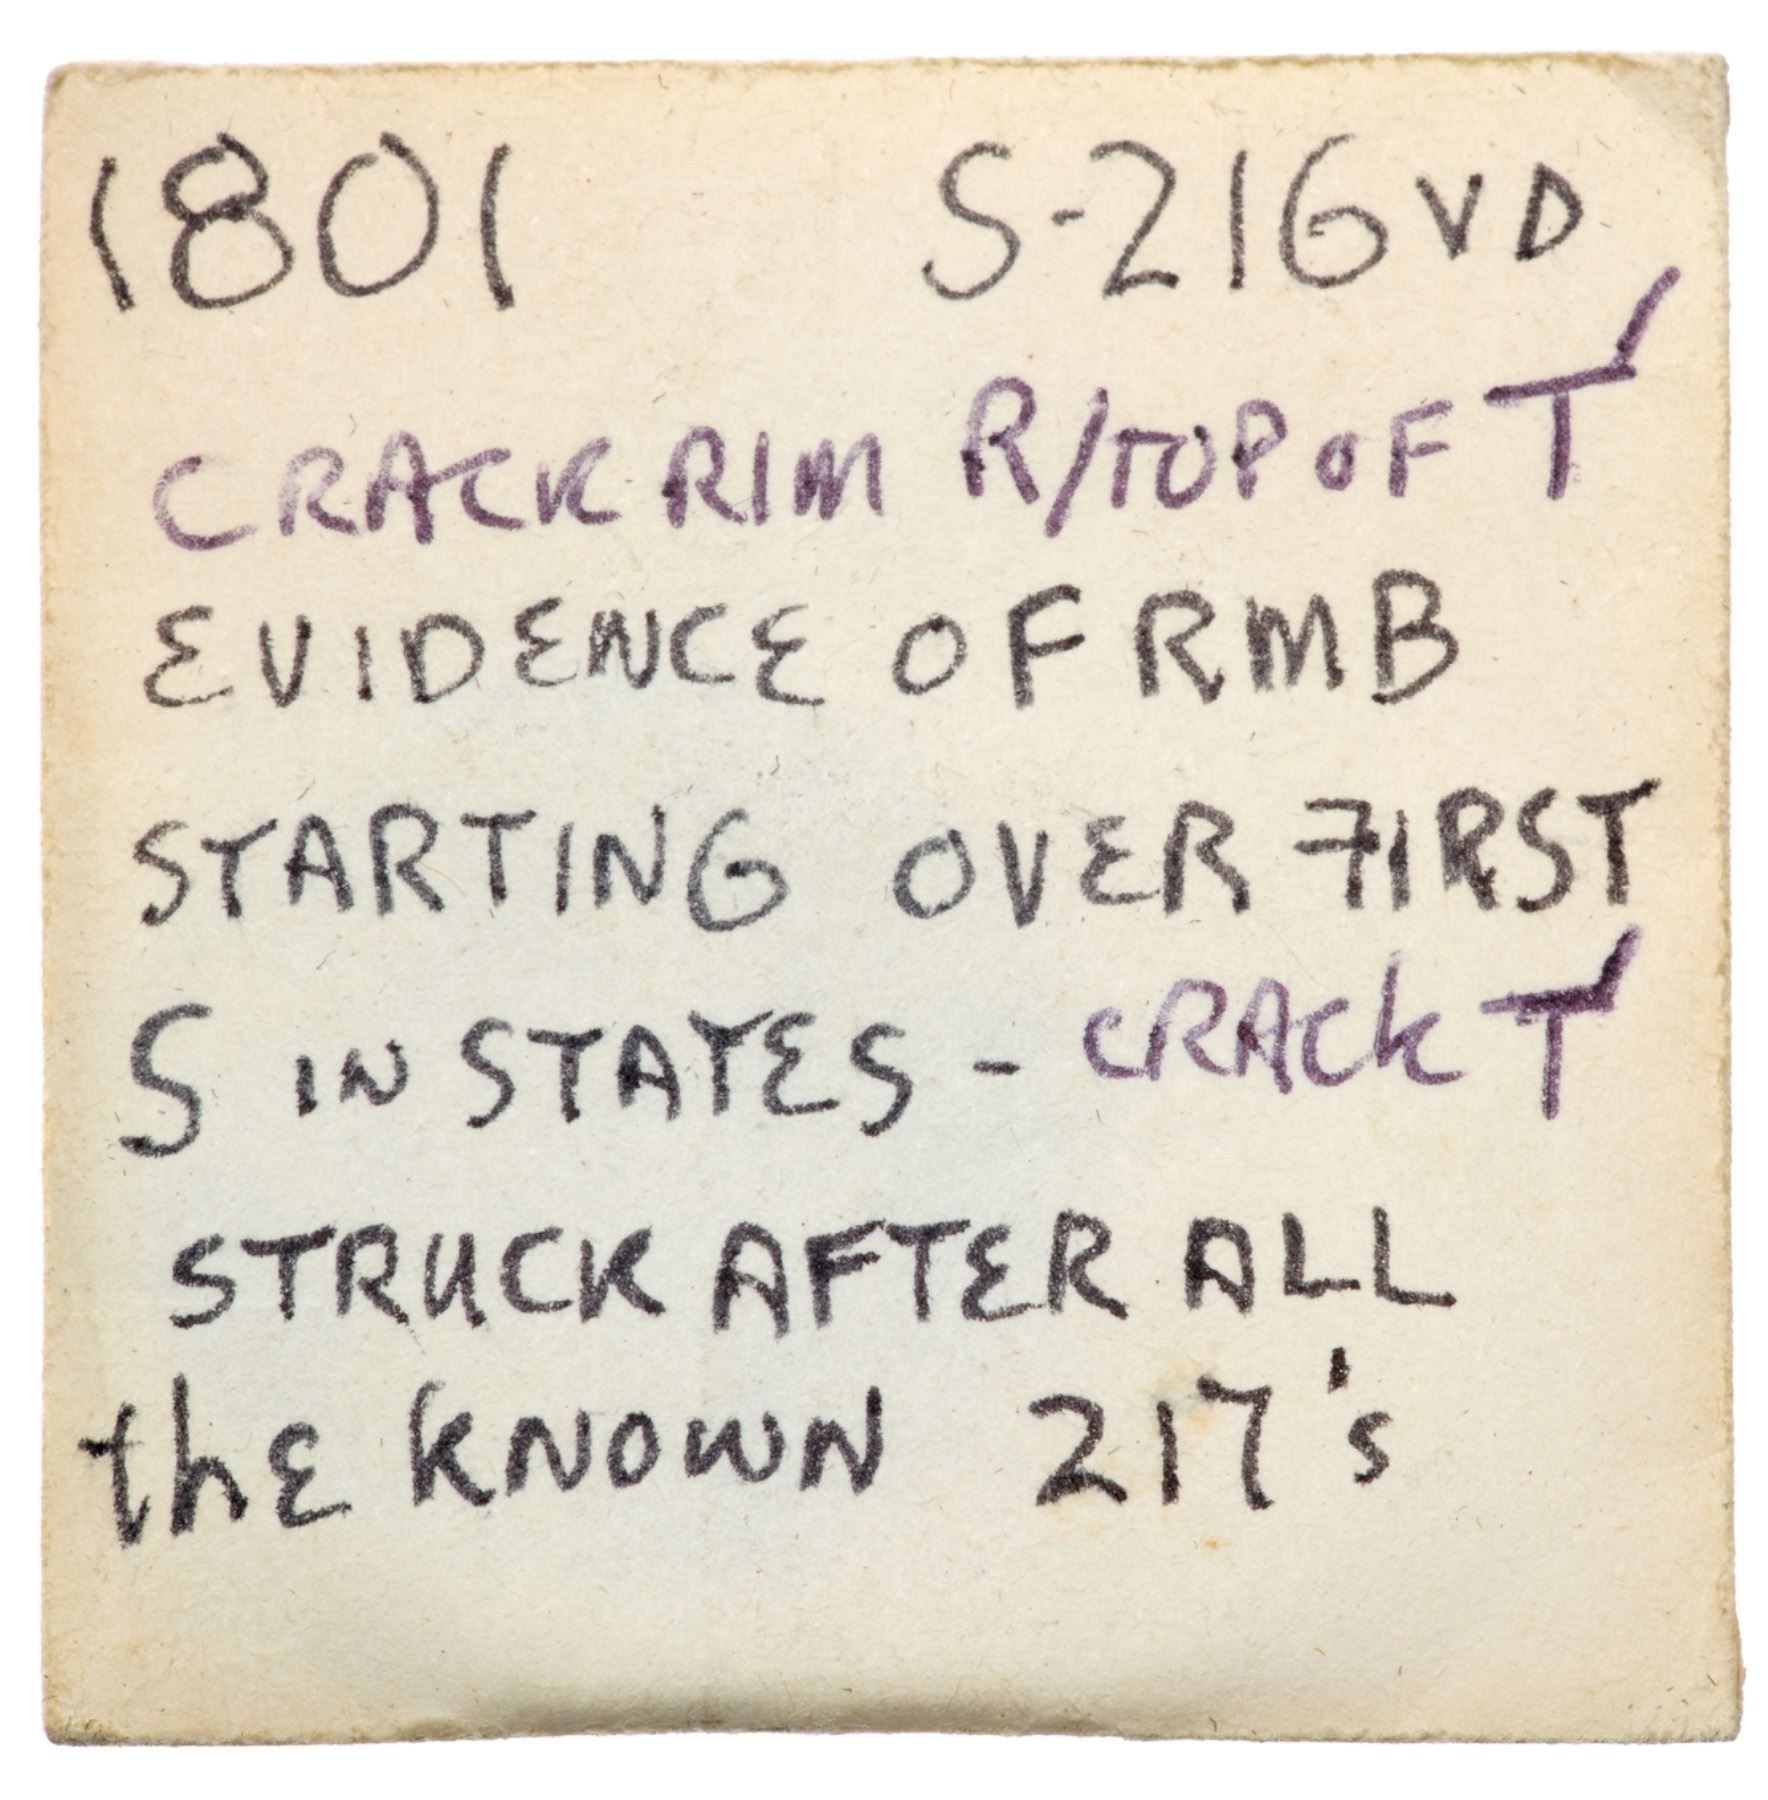 1801 S-216 VD
CRACK RIM R/TOP OF T
EVIDENCE OF RMB
STARTING OVER FIRST
S IN STATES - CRACK T
STRUCK AFTER ALL
the KNOWN 217's